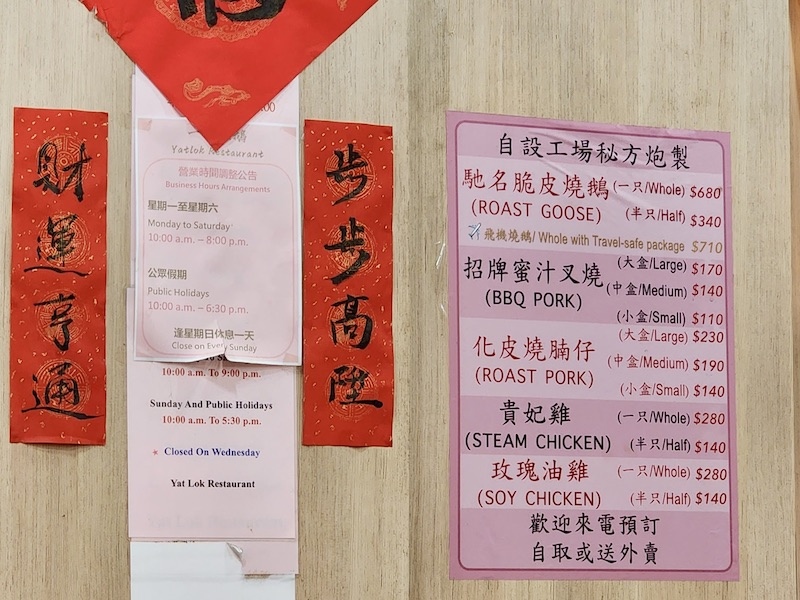 財運亨通
Yatlok Restaurant
營業時間調整公告
Business Hours Arrangements
星期一至星期六
Monday to Saturday
10:00 a.m. – 8:00 p.m.
公眾假期
Public Holidays
10:00 a.m. – 6:30 p.m.
逢星期日休息一天
Close on Every Sunday
10:00 a.m. To 9:00 p.m.
Sunday And Public Holidays
10:00 a.m. To 5:30 p.m.
* Closed On Wednesday
Yat Lok Restaurant
步步高陞
自設工場秘方炮製
馳名脆皮燒鵝 (一只/Whole) $680
(ROAST GOOSE) (半只/Half) $340
飛機燒鵝/ Whole with Travel-safe package $710
招牌蜜汁叉燒 (大盒/Large) $170
(BBQ PORK) (中盒/Medium) $140
(小盒/Small) $110
化皮燒腩仔 (大盒/Large) $230
(ROAST PORK) (中盒/Medium) $190
(小盒/Small) $140
貴妃雞 (一只/Whole) $280
(STEAM CHICKEN) (半只/Half) $140
玫瑰油雞 (一只/Whole) $280
(SOY CHICKEN) (半只/Half) $140
歡迎來電預訂
自取或送外賣